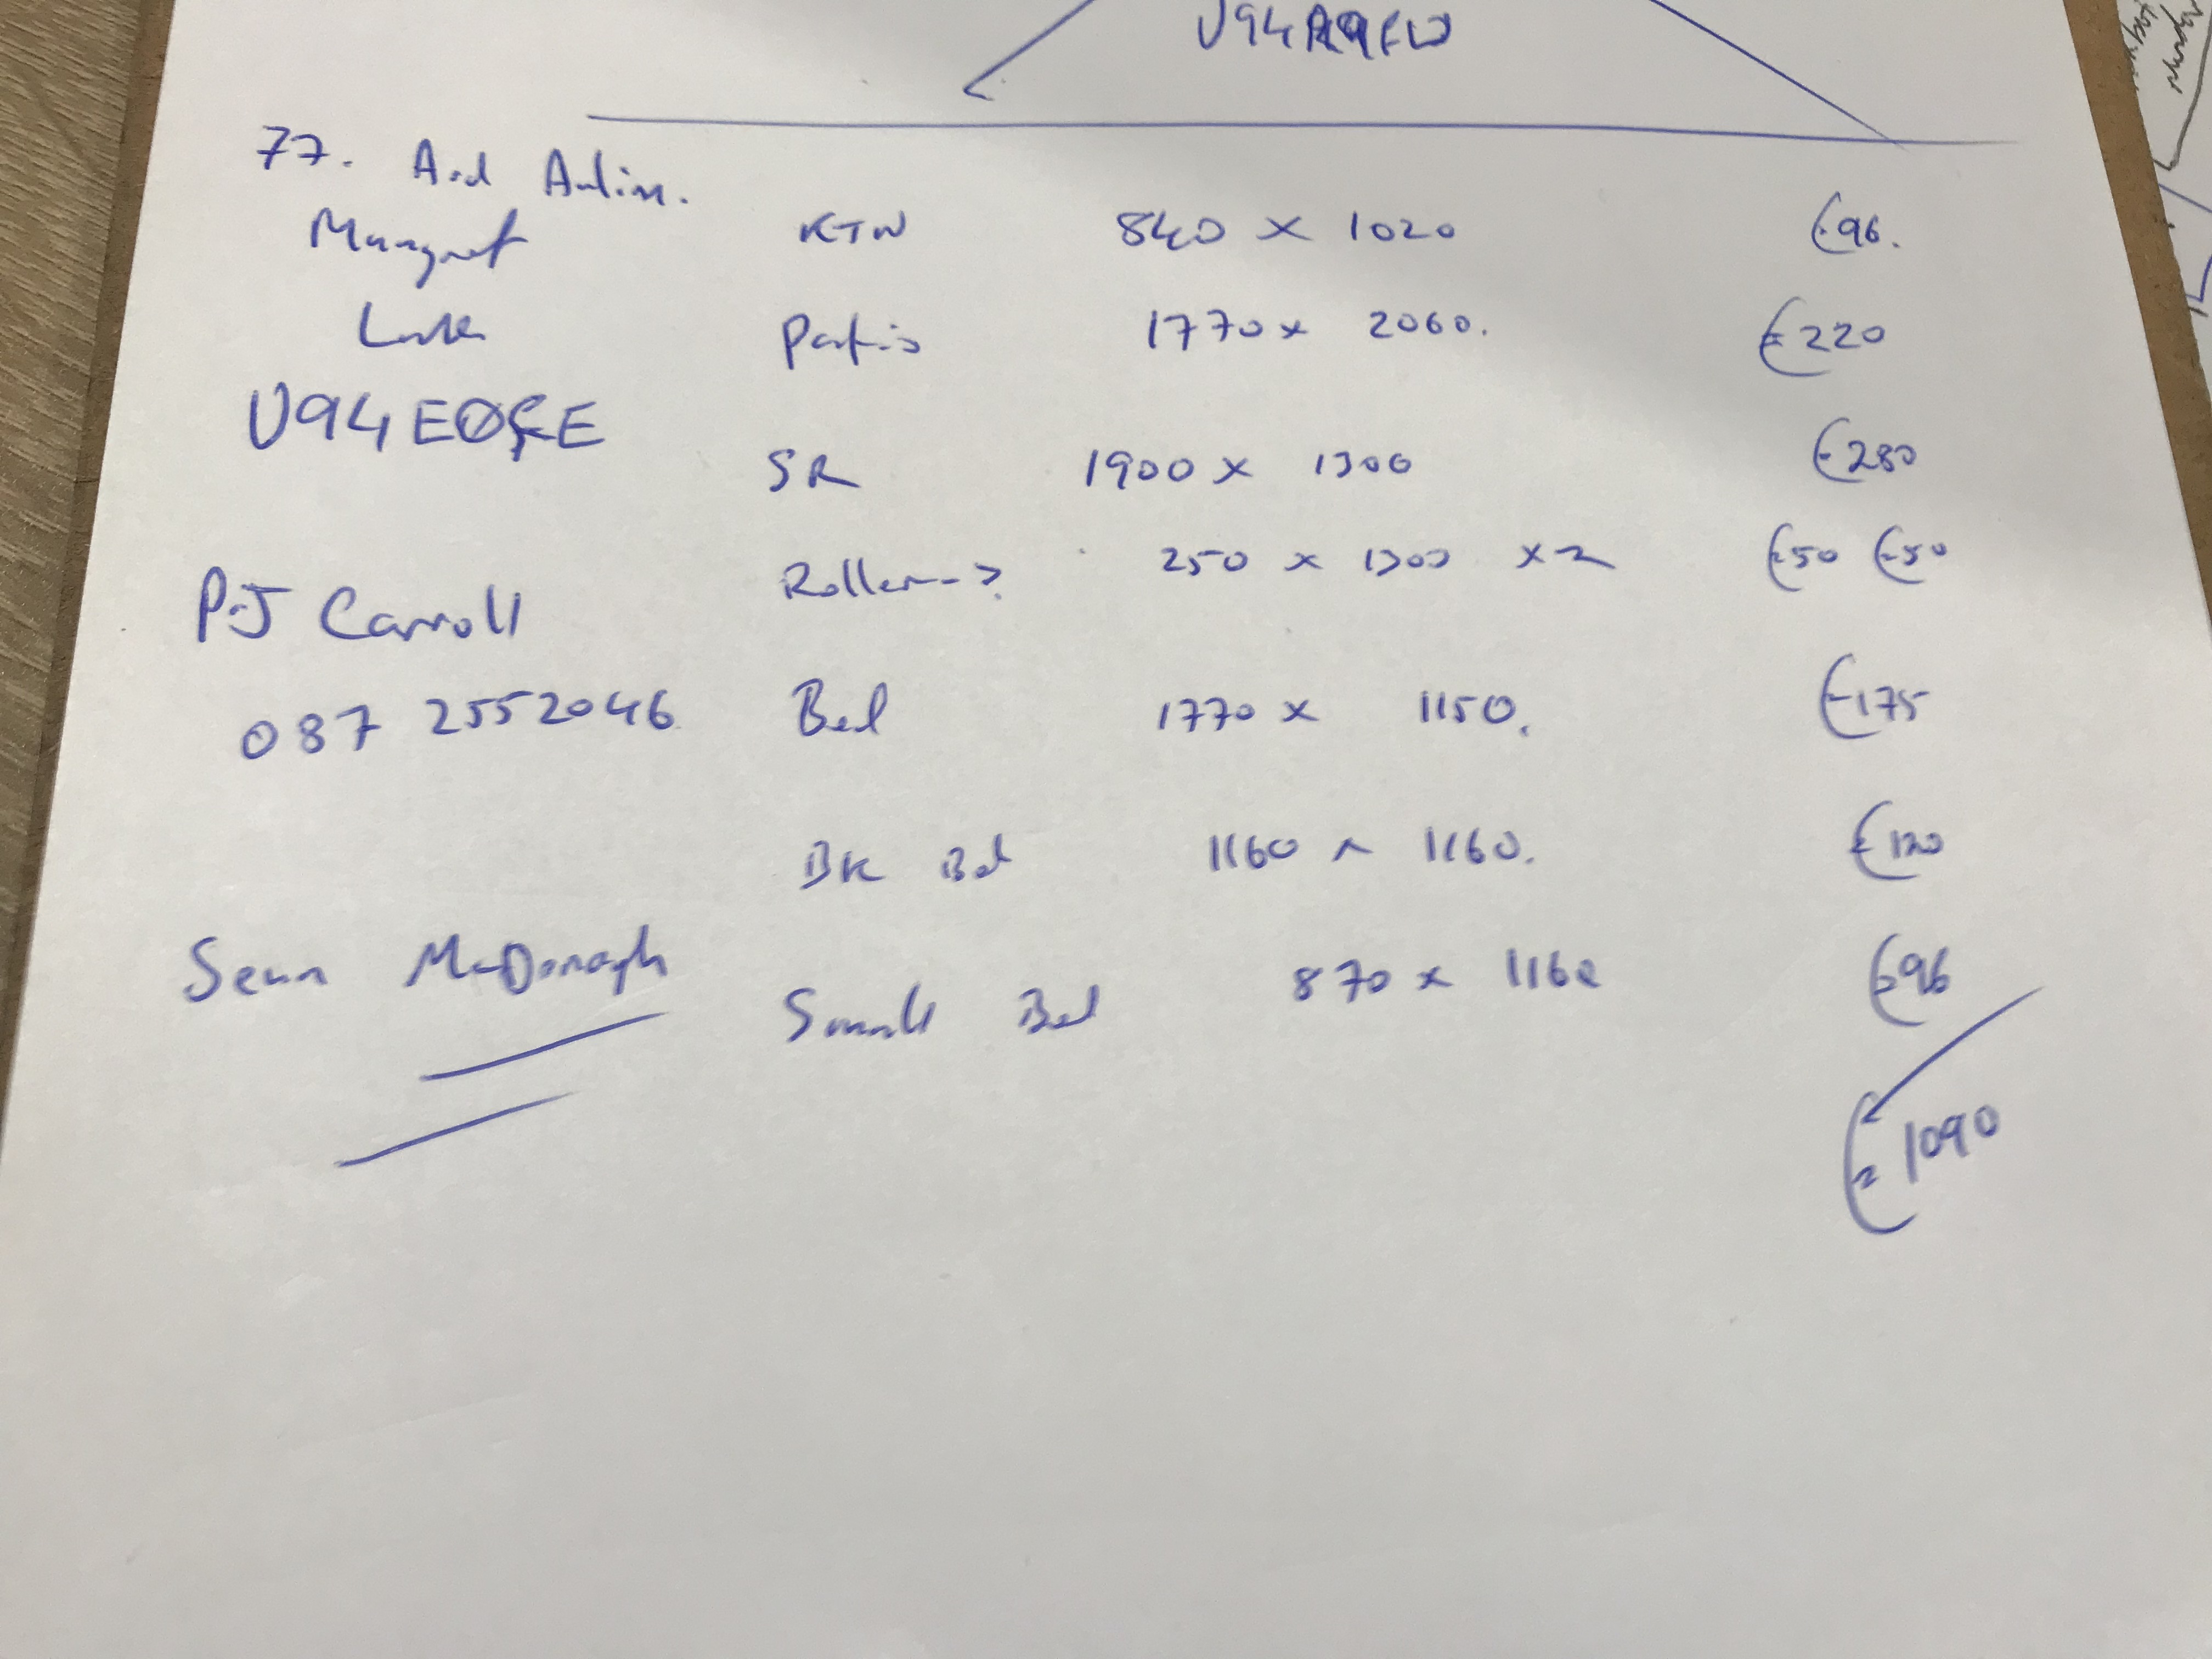 U94A9FW
77. Ard Aulinn.
Margaret KTN 840 x 1020 €96.
Patio 1770 x 2060. €220
U94E0FE
SR 1900 x 1300 €280
Roller -> 250 x 1300 x 2 €50 €50
P.J Carroll
087 2552046 Bed 1770 x 1150. €175
BK Bed 1160 x 1160. €120
Sean McDonagh Small Bed 870 x 1160 €96
€1090